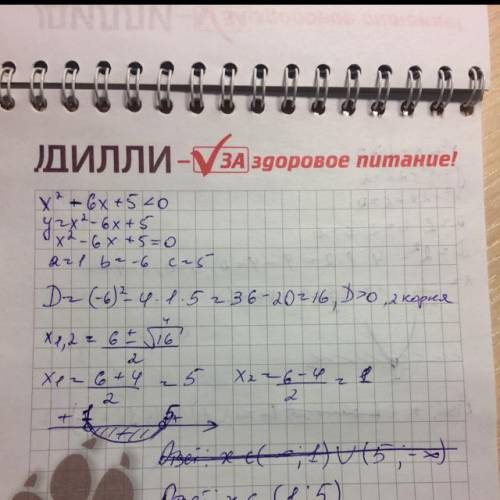 ДИЛЛИ – ЗА здоровое питание!
x² - 6x + 5 < 0
y = x² - 6x + 5
x² - 6x + 5 = 0
a = 1 b = -6 c = 5
D = (-6)² - 4 · 1 · 5 = 36 - 20 = 16, D > 0, 2 корня
x1,2 = (6 ± √16)/2
4
x1 = (6 + 4)/2 = 5 x2 = (6 - 4)/2 = 1
+ 1 5 +
Ответ: x ∈ (-∞; 1) ∪ (5; -∞)
Ответ: x ∈ (1; 5)